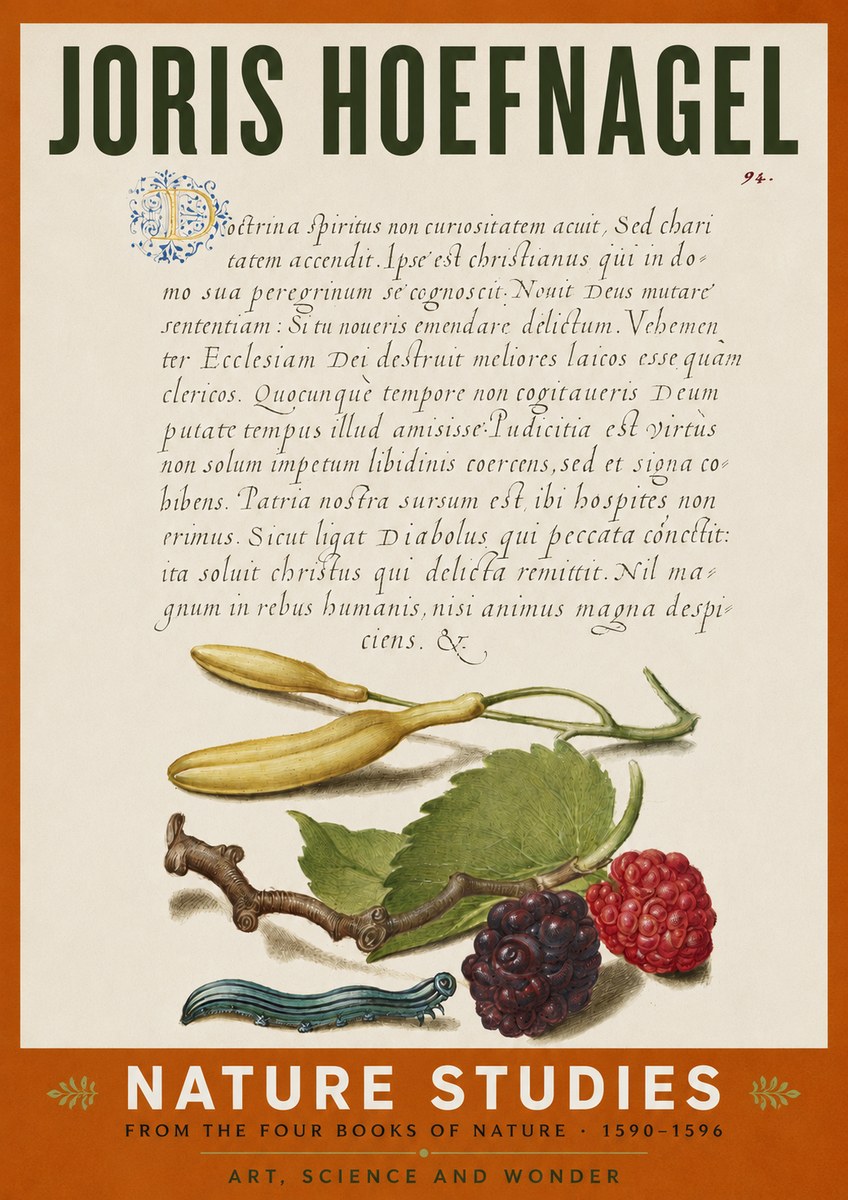 JORIS HOEFNAGEL
94.
Doctrina spiritus non curiositatem acuit, Sed chari
tatem accendit. Ipse est christianus qui in do-
mo sua peregrinum se cognoscit. Nouit Deus mutare
sententiam: Si tu noueris emendare delictum. Vehemen
ter Ecclesiam Dei destruit meliores laicos esse quàm
clericos. Quocunquè tempore non cogitaueris Deum
putate tempus illud amisisse. Pudicitia est virtùs
non solum impetum libidinis coercens, sed et signa co-
hibens. Patria nostra sursum est, ibi hospites non
erimus. Sicut ligat Diabolus, qui peccata
ita soluit christus qui delicta remittit. Nil ma-
gnum in rebus humanis, nisi animus magna despi-
ciens. &.
NATURE STUDIES
FROM THE FOUR BOOKS OF NATURE · 1590–1596
ART, SCIENCE AND WONDER